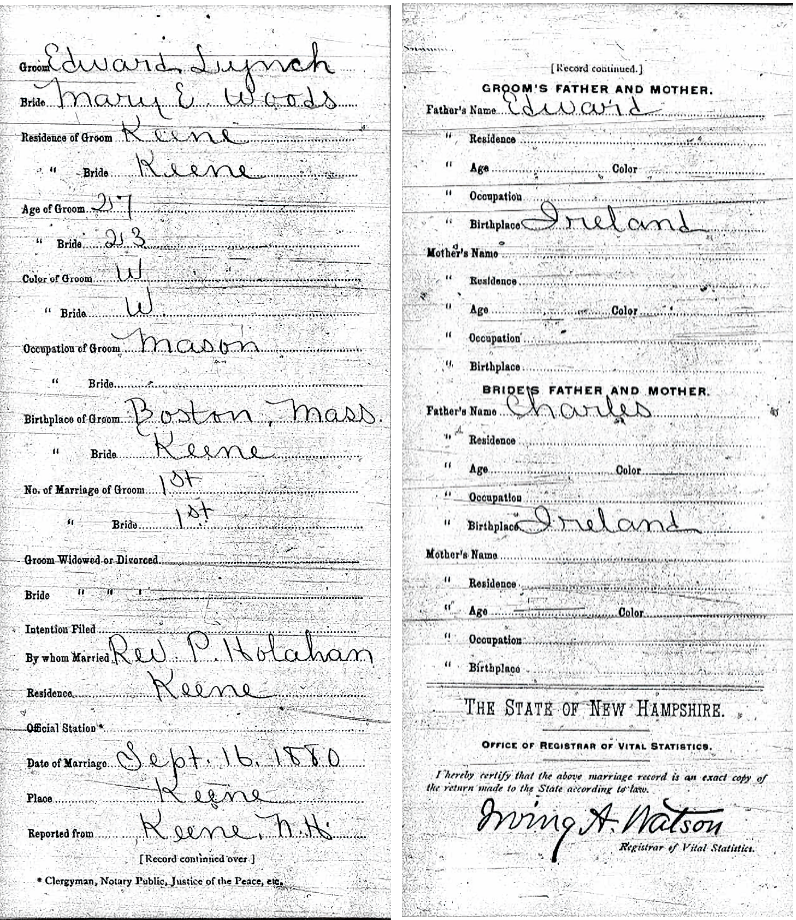 Groom Edward Lynch
Bride Mary E. Woods
Residence of Groom Keene
" Bride Keene
Age of Groom 27
" Bride 23
Color of Groom W
" Bride W
Occupation of Groom Mason
" Bride
Birthplace of Groom Boston, Mass.
" Bride Keene
No. of Marriage of Groom 1st
" Bride 1st
Groom Widowed or Divorced
Bride " " "
Intention Filed
By whom Married Rev. P. Holahan
Residence Keene
Official Station*
Date of Marriage Sept. 16. 1880
Place Keene
Reported from Keene, N.H.
[Record continued over.]
* Clergyman, Notary Public, Justice of the Peace, etc.
[Record continued.]
GROOM'S FATHER AND MOTHER.
Father's Name Edward
" Residence
" Age Color
" Occupation
" Birthplace Ireland
Mother's Name
" Residence
" Age Color
" Occupation
" Birthplace
BRIDE'S FATHER AND MOTHER.
Father's Name Charles
" Residence
" Age Color
" Occupation
" Birthplace Ireland
Mother's Name
" Residence
" Age Color
" Occupation
" Birthplace
THE STATE OF NEW HAMPSHIRE.
OFFICE OF REGISTRAR OF VITAL STATISTICS.
I hereby certify that the above marriage record is an exact copy of
the return made to the State according to law.
Irving A. Watson
Registrar of Vital Statistics.